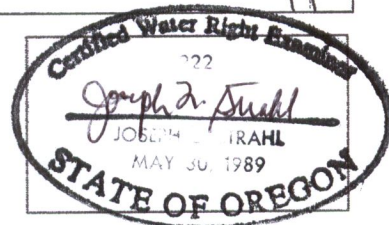 Certified Water Right Examiner
222
JOSEPH TRAHL
MAY 30, 1989
STATE OF OREGON